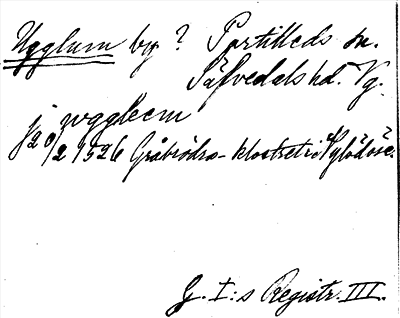 Ugglum by? Partilleds sn.
Säfvedals hd. Vg.
j uggleem
20/2 1526 Gråbrödra-klostret i Nylödöse.
G. I:s Registr. III.